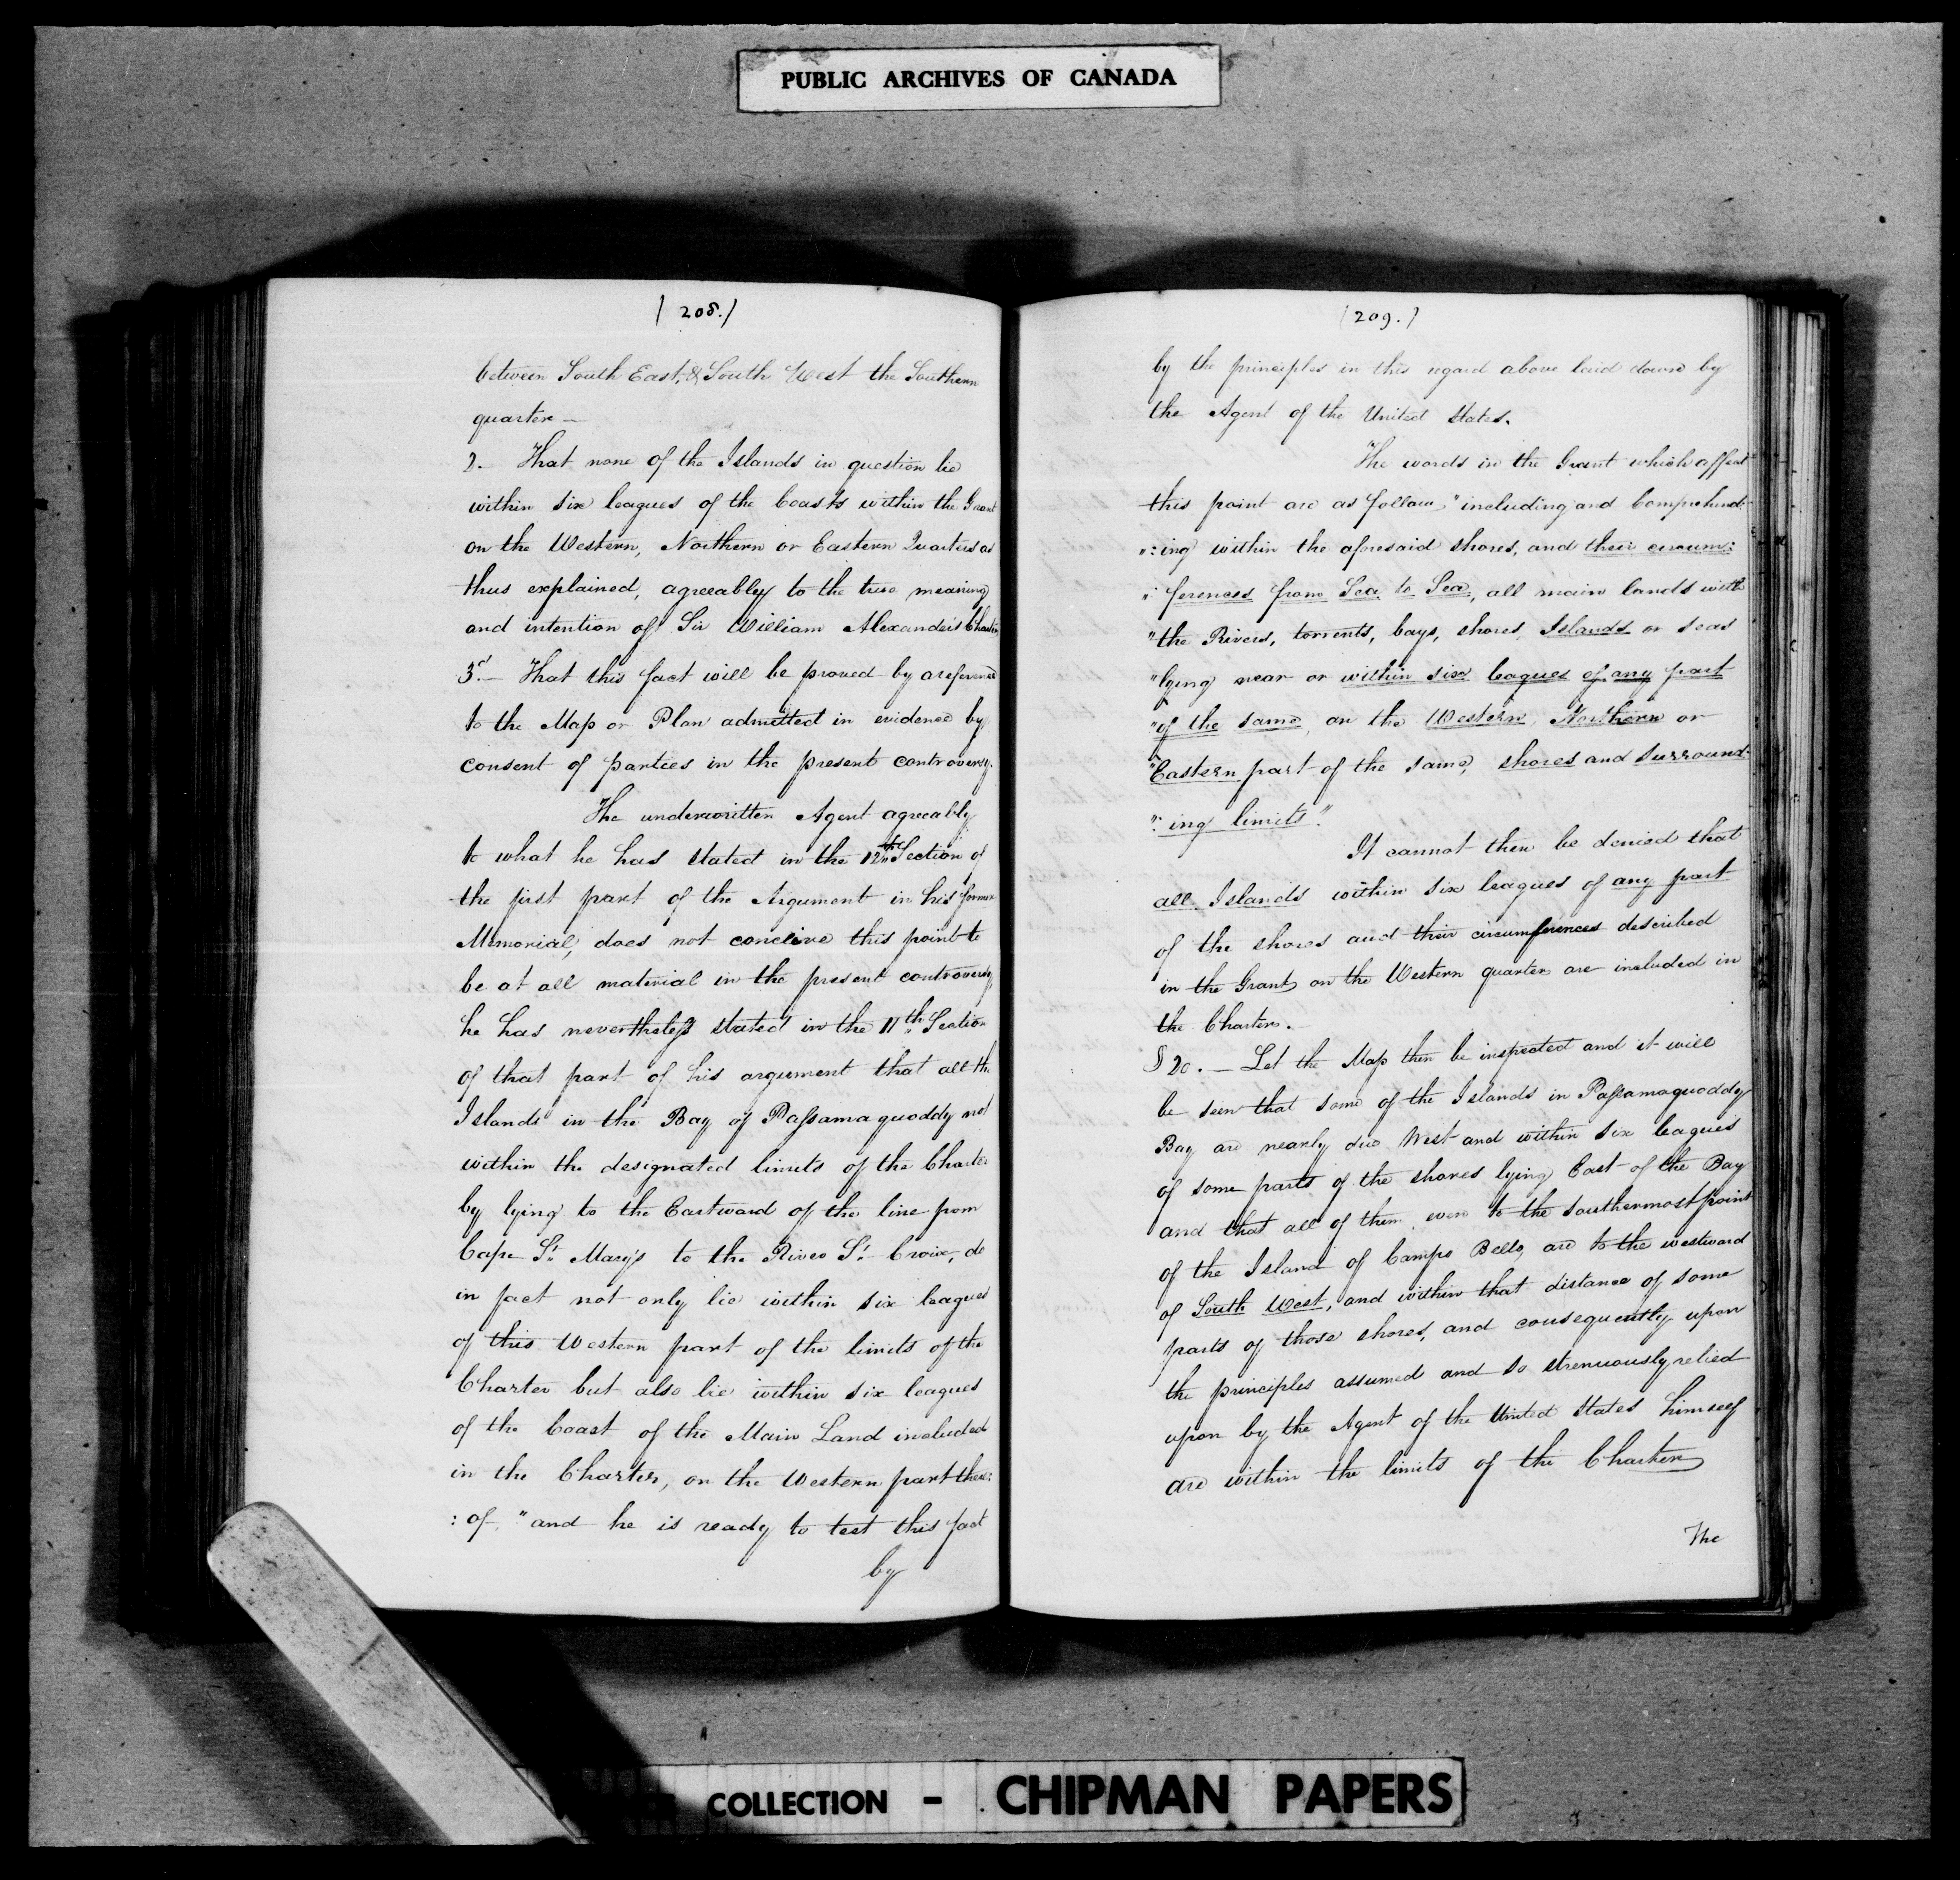 PUBLIC ARCHIVES OF CANADA
(208.)
between South East, & South West the Southern
quarter —
2. — That none of the Islands in question lie
within six leagues of the Coasts within the Grant
on the Western, Northern or Eastern Quarters as
thus explained, agreeably to the true meaning
and intention of Sir William Alexander's Charter
3d. — That this fact will be proved by a reference
to the Map or Plan admitted in evidence by
consent of parties in the present controversy.
The underwritten Agent agreeably
to what he has stated in the 12th Section of
the first part of the Argument in his former
Memorial, does not conceive this point to
be at all material in the present controversy,
he has nevertheless stated in the 11th Section
of that part of his argument that all the
Islands in the Bay of Passamaquoddy not
within the designated limits of the Charter
by lying to the Eastward of the line from
Cape St. Mary's to the River St. Croix, do
in fact not only lie within six leagues
of this Western part of the limits of the
Charter but also lie within six leagues
of the Coast of the Main Land included
in the Charter, on the Western part there:
: of, " and he is ready to test this fact
by
(209.)
by the principles in this regard above laid down by
the Agent of the United States.
The words in the Grant which affect
this point are as follow, "including and Comprehend:
": ing within the aforesaid shores, and their circum:
": ferences from Sea to Sea, all main lands with
"the Rivers, torrents, bays, shores, Islands or seas
"lying near or within six leagues of any part
"of the same, on the Western, Northern or
"Eastern part of the same, shores and surround:
": ing limits".
It cannot then be denied that
all Islands within six leagues of any part
of the shores and their circumferences described
in the Grant on the Western quarter are included in
the Charter. —
§ 20. — Let the Map then be inspected and it will
be seen that some of the Islands in Passamaquoddy
Bay are nearly due West and within six leagues
of some parts of the shores lying East of the Bay
and that all of them, even to the southermost point
of the Island of Campo Bello, are to the westward
of South West, and within that distance of some
parts of those shores, and consequently upon
the principles assumed and so strenuously relied
upon by the Agent of the United States himself
are within the limits of the Charter
The
COLLECTION - CHIPMAN PAPERS